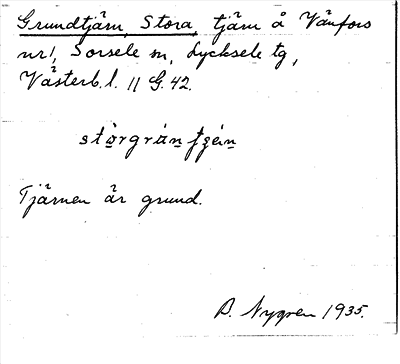 Grundtjärn, Stora, tjärn å Vänfors
nr 1, Sorsele sn, Lycksele tg,
Västerb. l. 11 G. 42.
Tjärnen är grund.
B. Nygren 1935.